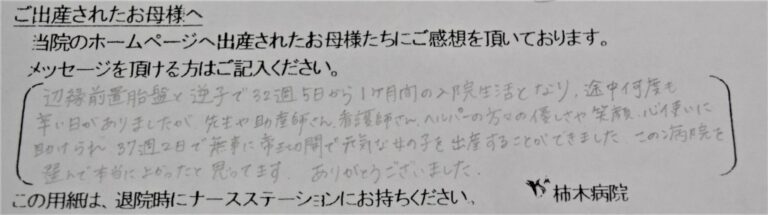 ご出産されたお母様へ
当院のホームページへ出産されたお母様たちにご感想を頂いております。
メッセージを頂ける方はご記入ください。
辺縁前置胎盤と逆子で32週5日から1ヶ月間の入院生活となり、途中何度も
辛い日がありましたが、先生や助産師さん、看護師さん、ヘルパーの方々の優しさや笑顔、心使いに
助けられ、37週2日で無事に帝王切開で元気な女の子を出産することができました。この病院を
選んで本当に上がったと思ってます。ありがとうございました。
この用紙は、退院時にナースステーションにお持ちください。
柿木病院